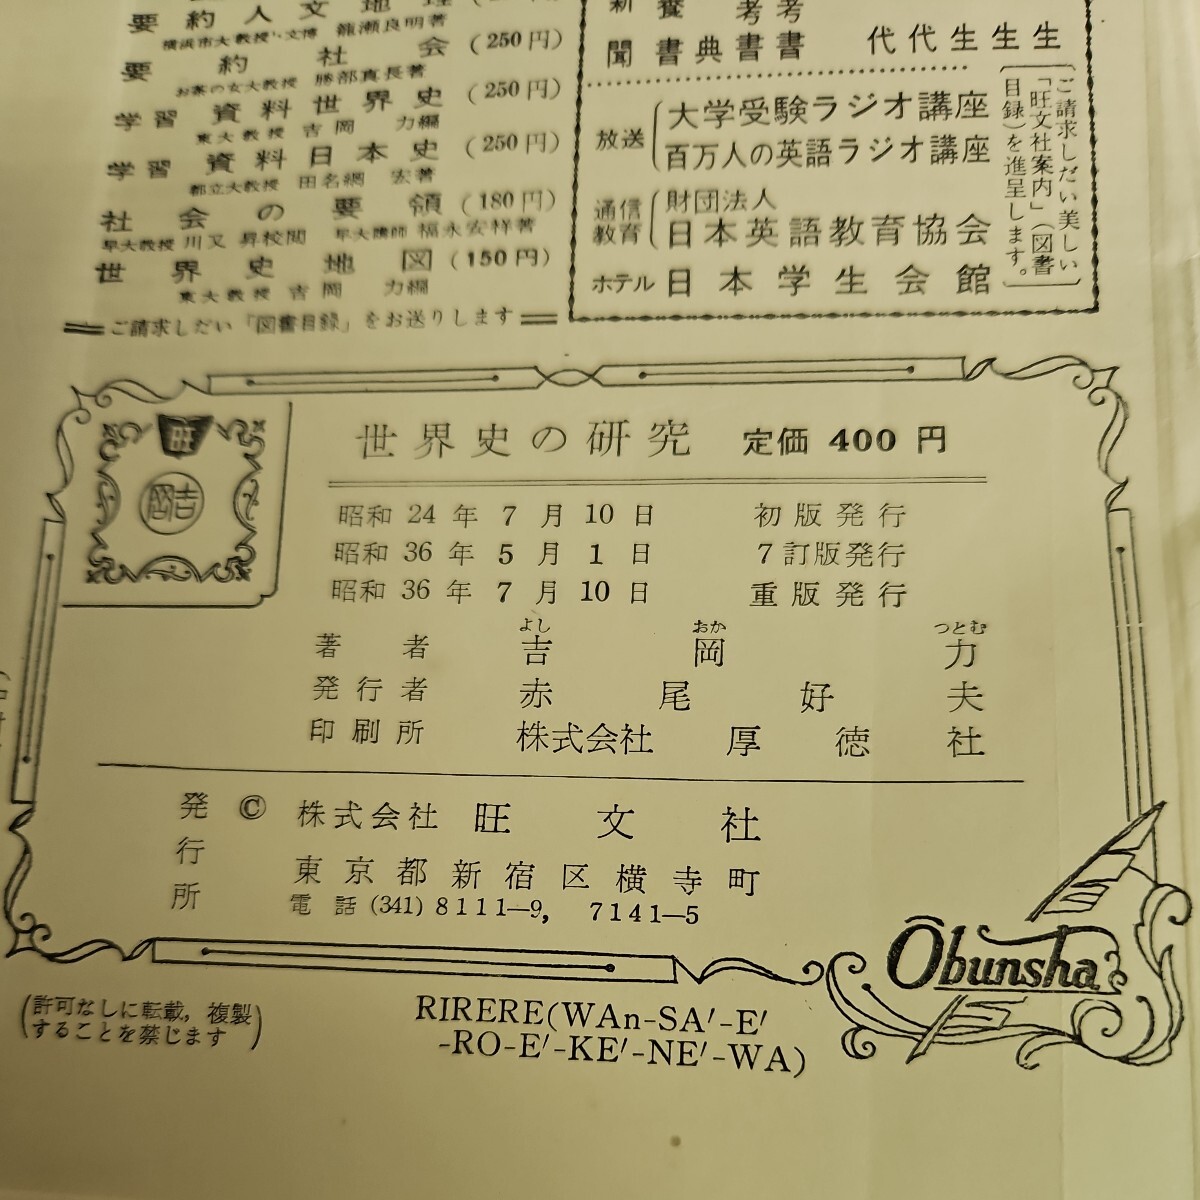 要約人文地理
横浜市大教授・文博 籠瀬良明著
要約社会 (250円)
お茶の女大教授 勝部真長著
学習 資料世界史 (250円)
東大教授 吉岡 力編
学習 資料日本史 (250円)
都立大教授 田名網 宏著
社会の要領 (180円)
早大教授 川又 昇校閲 早大講師 福永安祥著
世界史地図 (150円)
東大教授 吉岡 力編
ご請求しだい「図書目録」をお送りします
聞 書典書書 代代生生生
放送 大学受験ラジオ講座
百万人の英語ラジオ講座
通信教育 財団法人
日本英語教育協会
ホテル 日本学生会館
ご請求しだい美しい
「旺文社案内」(図書
目録)を進呈します。
旺
吉岡
世界史の研究 定価 400 円
昭和 24 年 7 月 10 日 初版発行
昭和 36 年 5 月 1 日 7訂版発行
昭和 36 年 7 月 10 日 重版発行
よし おか つとむ
著者 吉岡力
発行者 赤尾好夫
印刷所 株式会社 厚徳社
発行所 © 株式会社 旺文社
東京都新宿区横寺町
電話 (341) 8111—9, 7141—5
Obunsha
(許可なしに転載, 複製
することを禁じます)
RIRERE(WAn-SA′-E′
-RO-E′-KE′-NE′-WA)